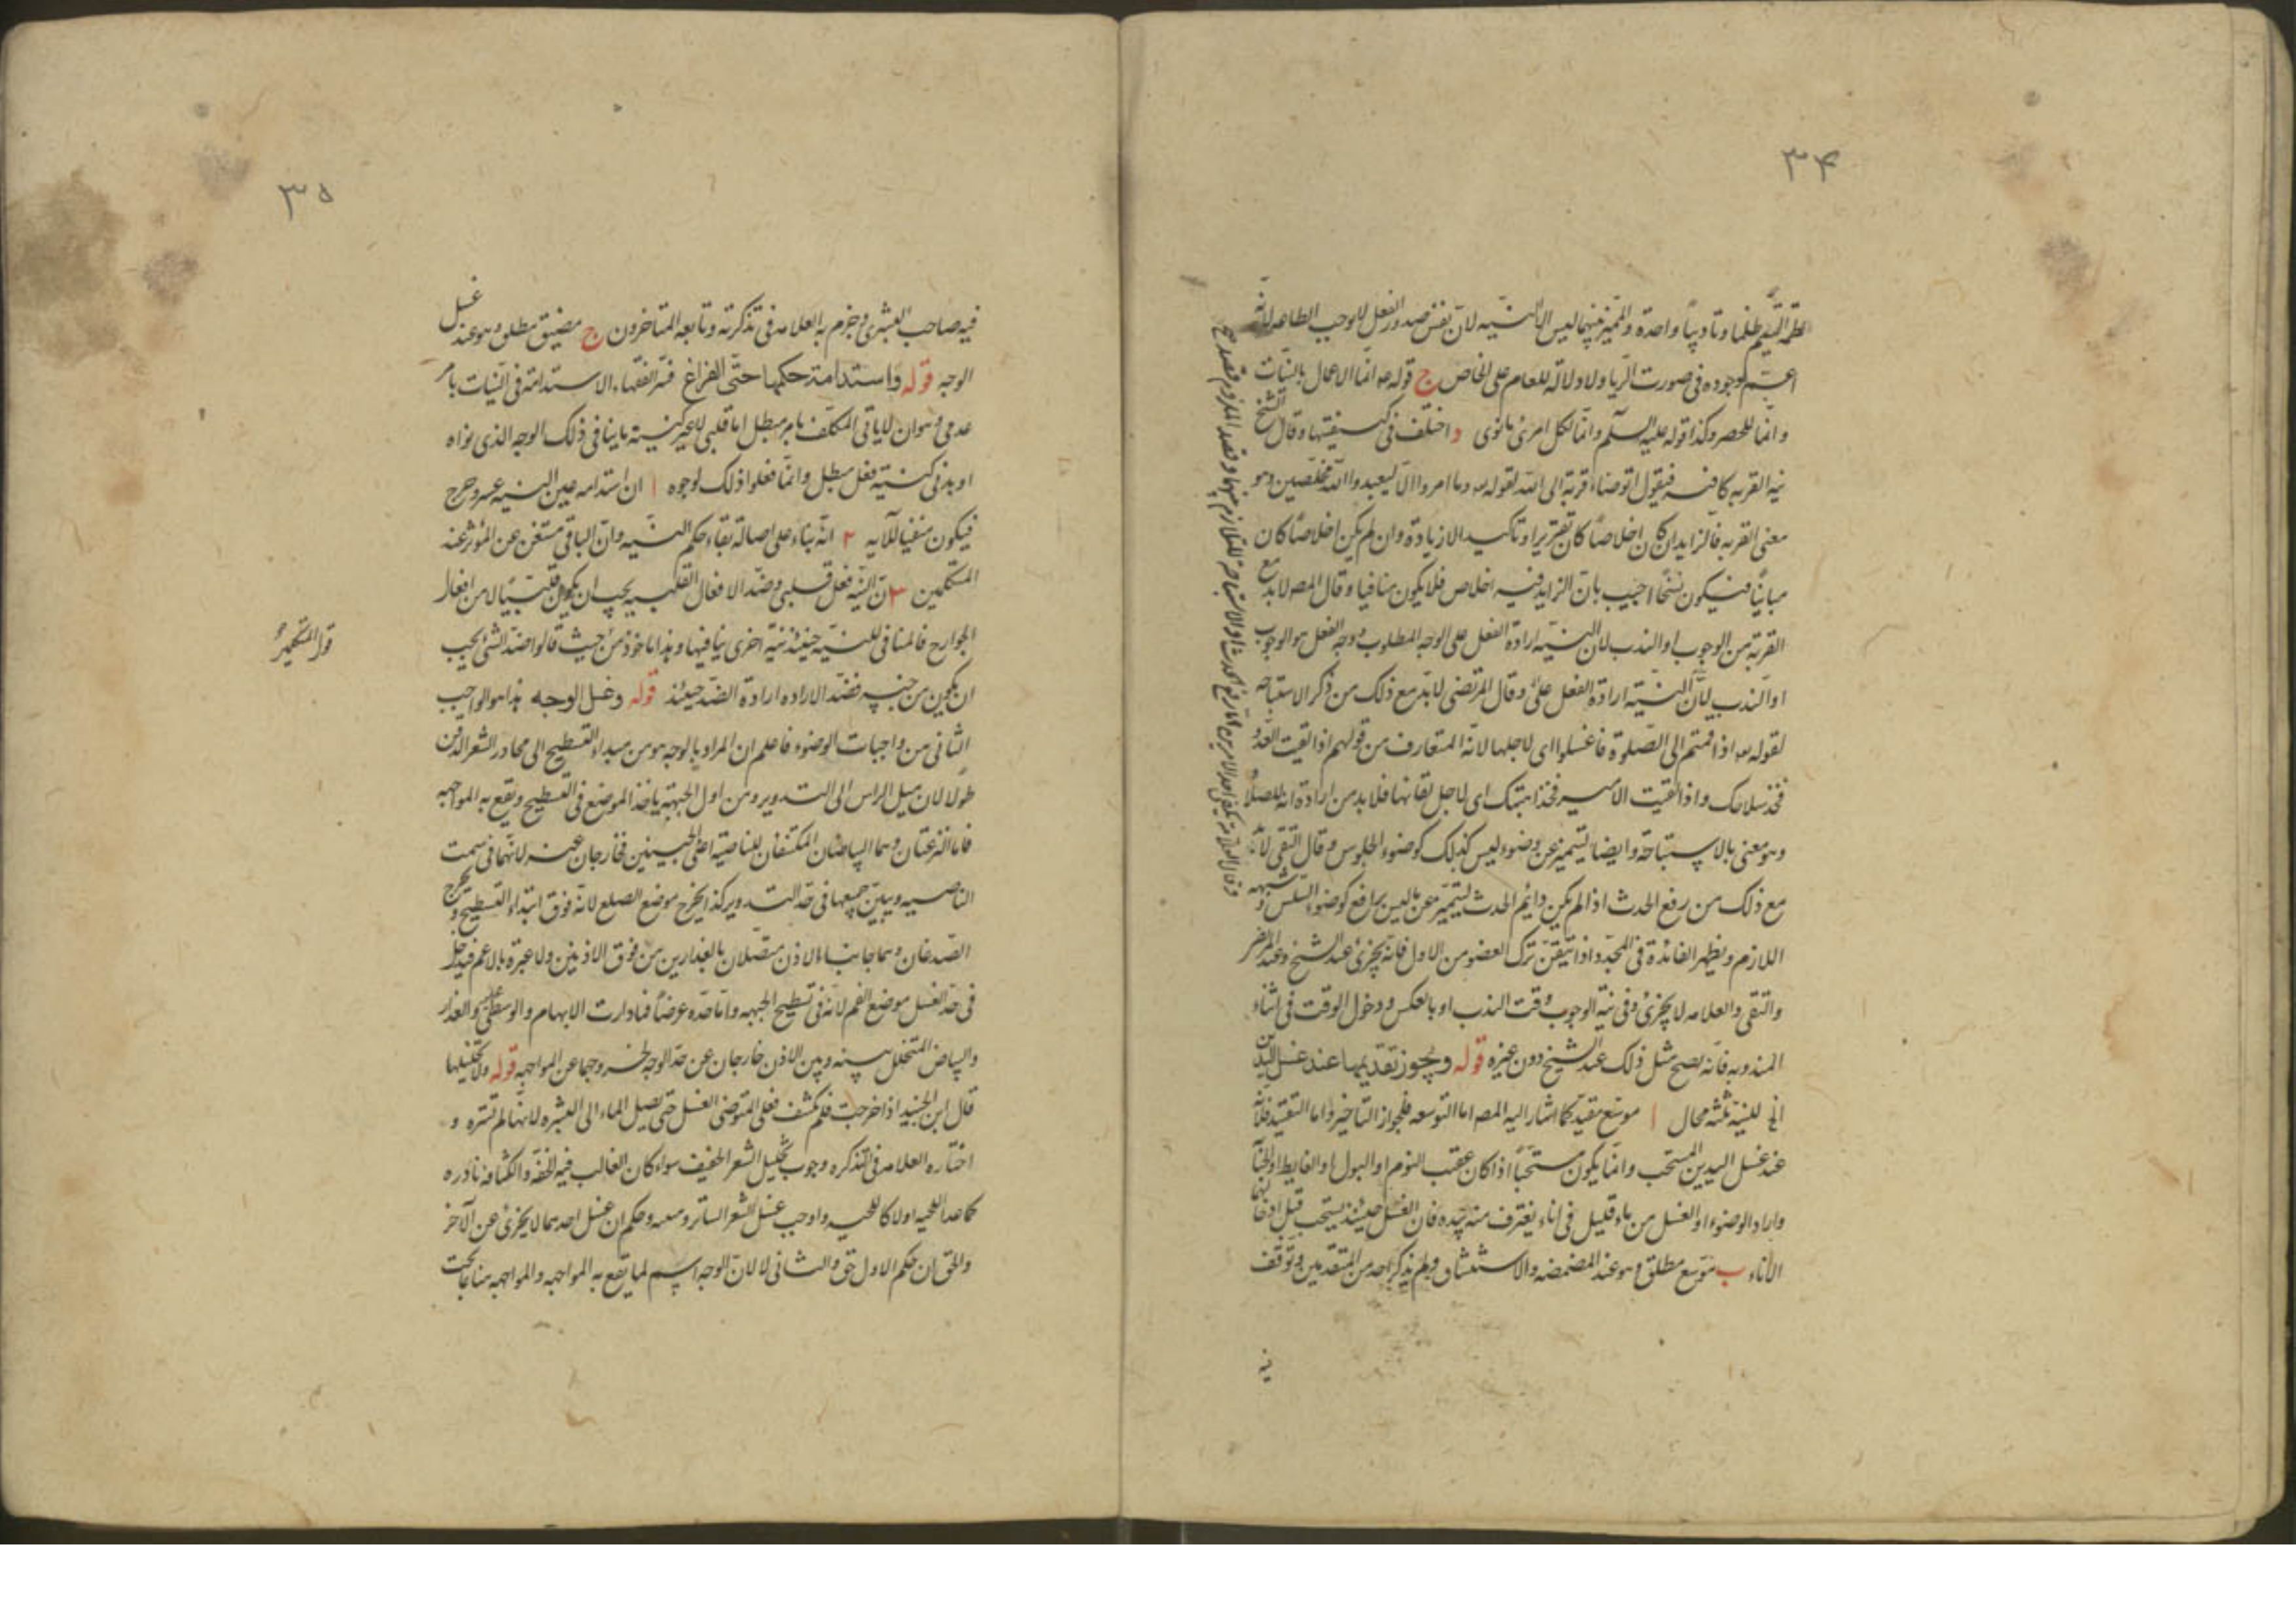 ٣۴
اعم لوجوده فى صورت الريا ولا دلالة للعام على الخاص ج قوله ع انما الاعمال بالنيات
وانما للحصر وكذا قوله عليه السلم وانما لكل امرئ ما نوى د اختلف فى كيفيتها وقال الشيخ
نية القربه كافيه فيقول اتوضاء قربة الى الله لقوله تع وما امروا الا ليعبدوا الله مخلصين وهو
معنى القربه فالزايد ان كان اخلاصا كان تقريرا وتاكيدا لا زيادة وان لم يكن اخلاصا كان
مباينا فيكون نسخا اجيب بان الزايد فيه اخلاص فلا يكون منافيا وقال المص لا بد مع
القربة من الوجوب او الندب لان النية ارادة الفعل على الوجه المطلوب ووجه الفعل هو الوجوب
او الندب لان النية ارادة الفعل على وقال المرتضى لا بد مع ذلك من ذكر الاستباحه
لقوله تع اذا قمتم الى الصلوة فاغسلوا اى لاجلها لانه المتعارف من قولهم اذا لقيت العدو
فخذ سلاحك واذا لقيت الامير فخذ اهبتك اى لاجل لقائهما فلا بد من ارادة انه للصلوة
وهو معنى بالاستباحة وايضا ليتميز عن وضوء ليس كذلك كوضوء الجلوس وقال التقى لا بد
مع ذلك من رفع الحدث اذا لم يكن دايم الحدث ليتميز عن ما ليس برافع كوضوء السلس وشبهه
اللازم ويظهر الفائدة فى المجدد اذا تيقن ترك العضو من الاول فانه يجزئ عند الشيخ وعند المرتضى
والتقى والعلامه لا يجزئ وفى نية الوجوب وقت الندب او بالعكس ودخول الوقت فى اثناء
المندوبه فانه يصح مثل ذلك عند الشيخ دون غيره قوله ويجوز تقديمها عند غسل اليدين
الخ للنية ثلثه محال ا موسع مقيد كما اشار اليه المص اما التوسعه فلجواز التاخير واما التقييد فلانه
عند غسل اليدين المستحب وانما يكون مستحبا اذا كان عقيب النوم او البول او الغايط او الجنابة
واراد الوضوء او الغسل من ماء قليل فى اناء يغترف منه بيده فان الغسل حينئذ يستحب قبل ادخالهما
الاناء ب موسع مطلق وهو عند المضمضه والاستنشاق ولم يذكره احد من المتقدمين وتوقف
فيه
٣۵
فيه صاحب البشرى وجزم به العلامه فى تذكرته وتابعه المتاخرون ج مضيق مطلق وهو عند غسل
الوجه قوله واستدامة حكمها حتى الفراغ فسر الفقهاء الاستدامة فى النيات بامر
عدمى وهو ان لا ياتى المكلف بامر مبطل اما قلبى لا غير كنيته ما ينافى ذلك الوجه الذى نواه
او بدنى كنية فعل مبطل وانما فعلوا ذلك لوجوه ا ان استدامه عين النيه عسر وحرج
فيكون منفيا للآيه ٢ انه بناء على اصالة بقاء حكم النيه وان الباقى مستغن عن المؤثر عند
المتكلمين ٣ ان النية فعل قلبى وضد الافعال القلبيه يجب ان يكون قلبيا لا من افعال
الجوارح فالمنافى للنيه حينئذ نية اخرى ينافيها وهذا ماخوذ من حيث قالوا ضد الشئ يجب
ان يكون من جنسه فضد الاراده ارادة الضد حينئذ قوله وغسل الوجه هذا هو الواجب
الثانى من واجبات الوضوء فاعلم ان المراد بالوجه هو من مبداء التسطيح الى محادر الشعر الذقن
طولا لان ميل الراس الى التدوير ومن اول الجبهة ياخذ الموضع فى التسطيح ويقع به المواجهه
فاما النزعتان وهما البياضان المكتنفان للناصية اعلى الجبينين فخارجان عنه لانهما فى سمت
الناصيه ويبين جميعها فى حد التدوير كذا يخرج موضع الصلع لانه فوق ابتداء التسطيح ويخرج
الصدغان وهما جانبا الاذن متصلان بالعذارين من فوق الاذنين ولا عبرة بالاغم فيدخل
فى حد الغسل موضع الغمم لانه فى تسطيح الجبهه واما حده عرضا فما دارت الابهام والوسطى عليه والعذار
والبياض المتخلل بينه وبين الاذن خارجان عن حد الوجه لخروجهما عن المواجهه قوله ولا تخليلها
قال ابن الجنيد اذا خرجت فلم تكشف فعلى المتوضى الغسل حتى يصل الماء الى البشره لانها لم تستره و
اختاره العلامه فى التذكره وجوب تخليل الشعر الخفيف سواء كان الغالب فيه الخفة والكثافه نادره
كما عدا اللحيه اولا كاللحيه واوجب غسل الشعر الساتر ومنبته وحكم ان غسل احدهما لا يجزئ عن الآخر
والحق ان حكم الاول حق والثانى لا لان الوجه اسم لما يقع به المواجهه والمواجهه